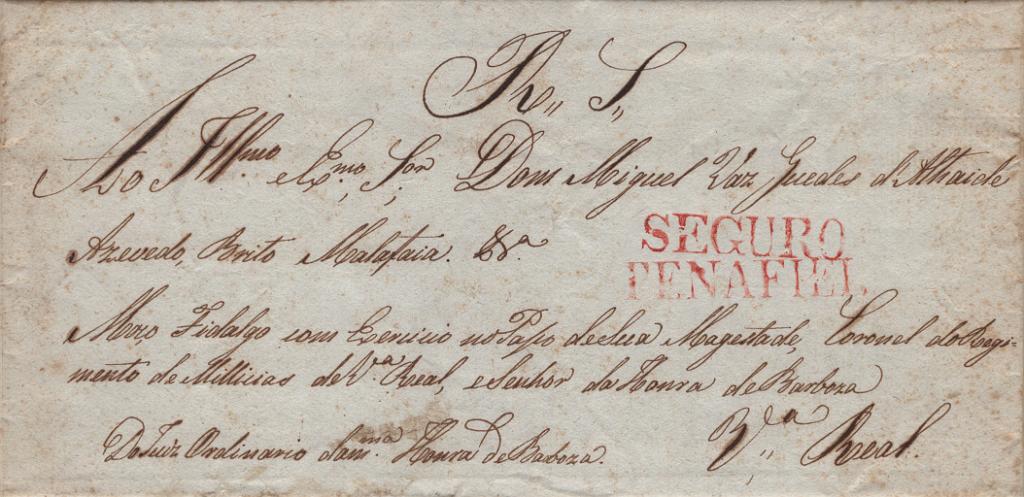 R,, S,,
Ao Illmo. e Exmo, Sor, Dom Miguel Vaz Guedes d'Athaide
Azevedo, Brito Malafaia. &.a
Moço Fidalgo com Exercicio no Paço de Sua Magestade, Coronel do Regi-
mento de Millicias de V.a Real, e Senhor da Honra de Barboza
SEGURO
PENAFIEL
Do Juiz Ordinario dam.ma Honra de Barboza.
V,,a Real.